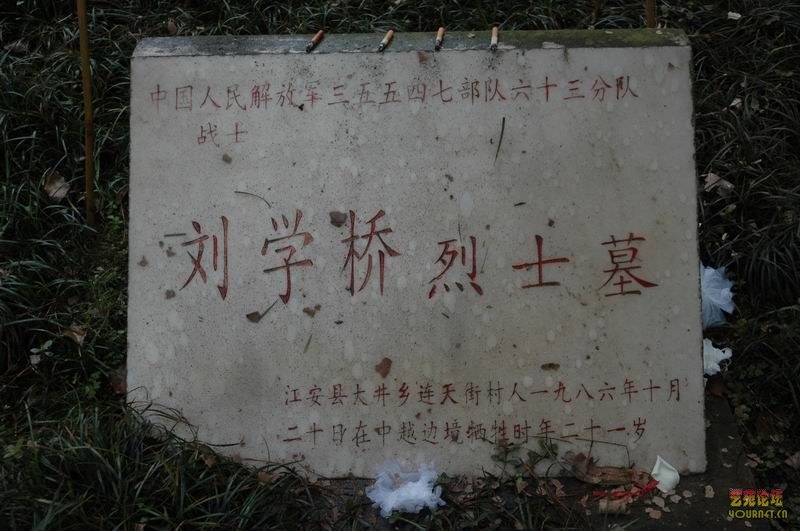 中国人民解放军三五五四七部队六十三分队
战士
刘学桥烈士墓
江安县大井乡连天街村人一九八六年十月
二十日在中越边境牺牲时年二十一岁
艺苑论坛
YOURNET.CN